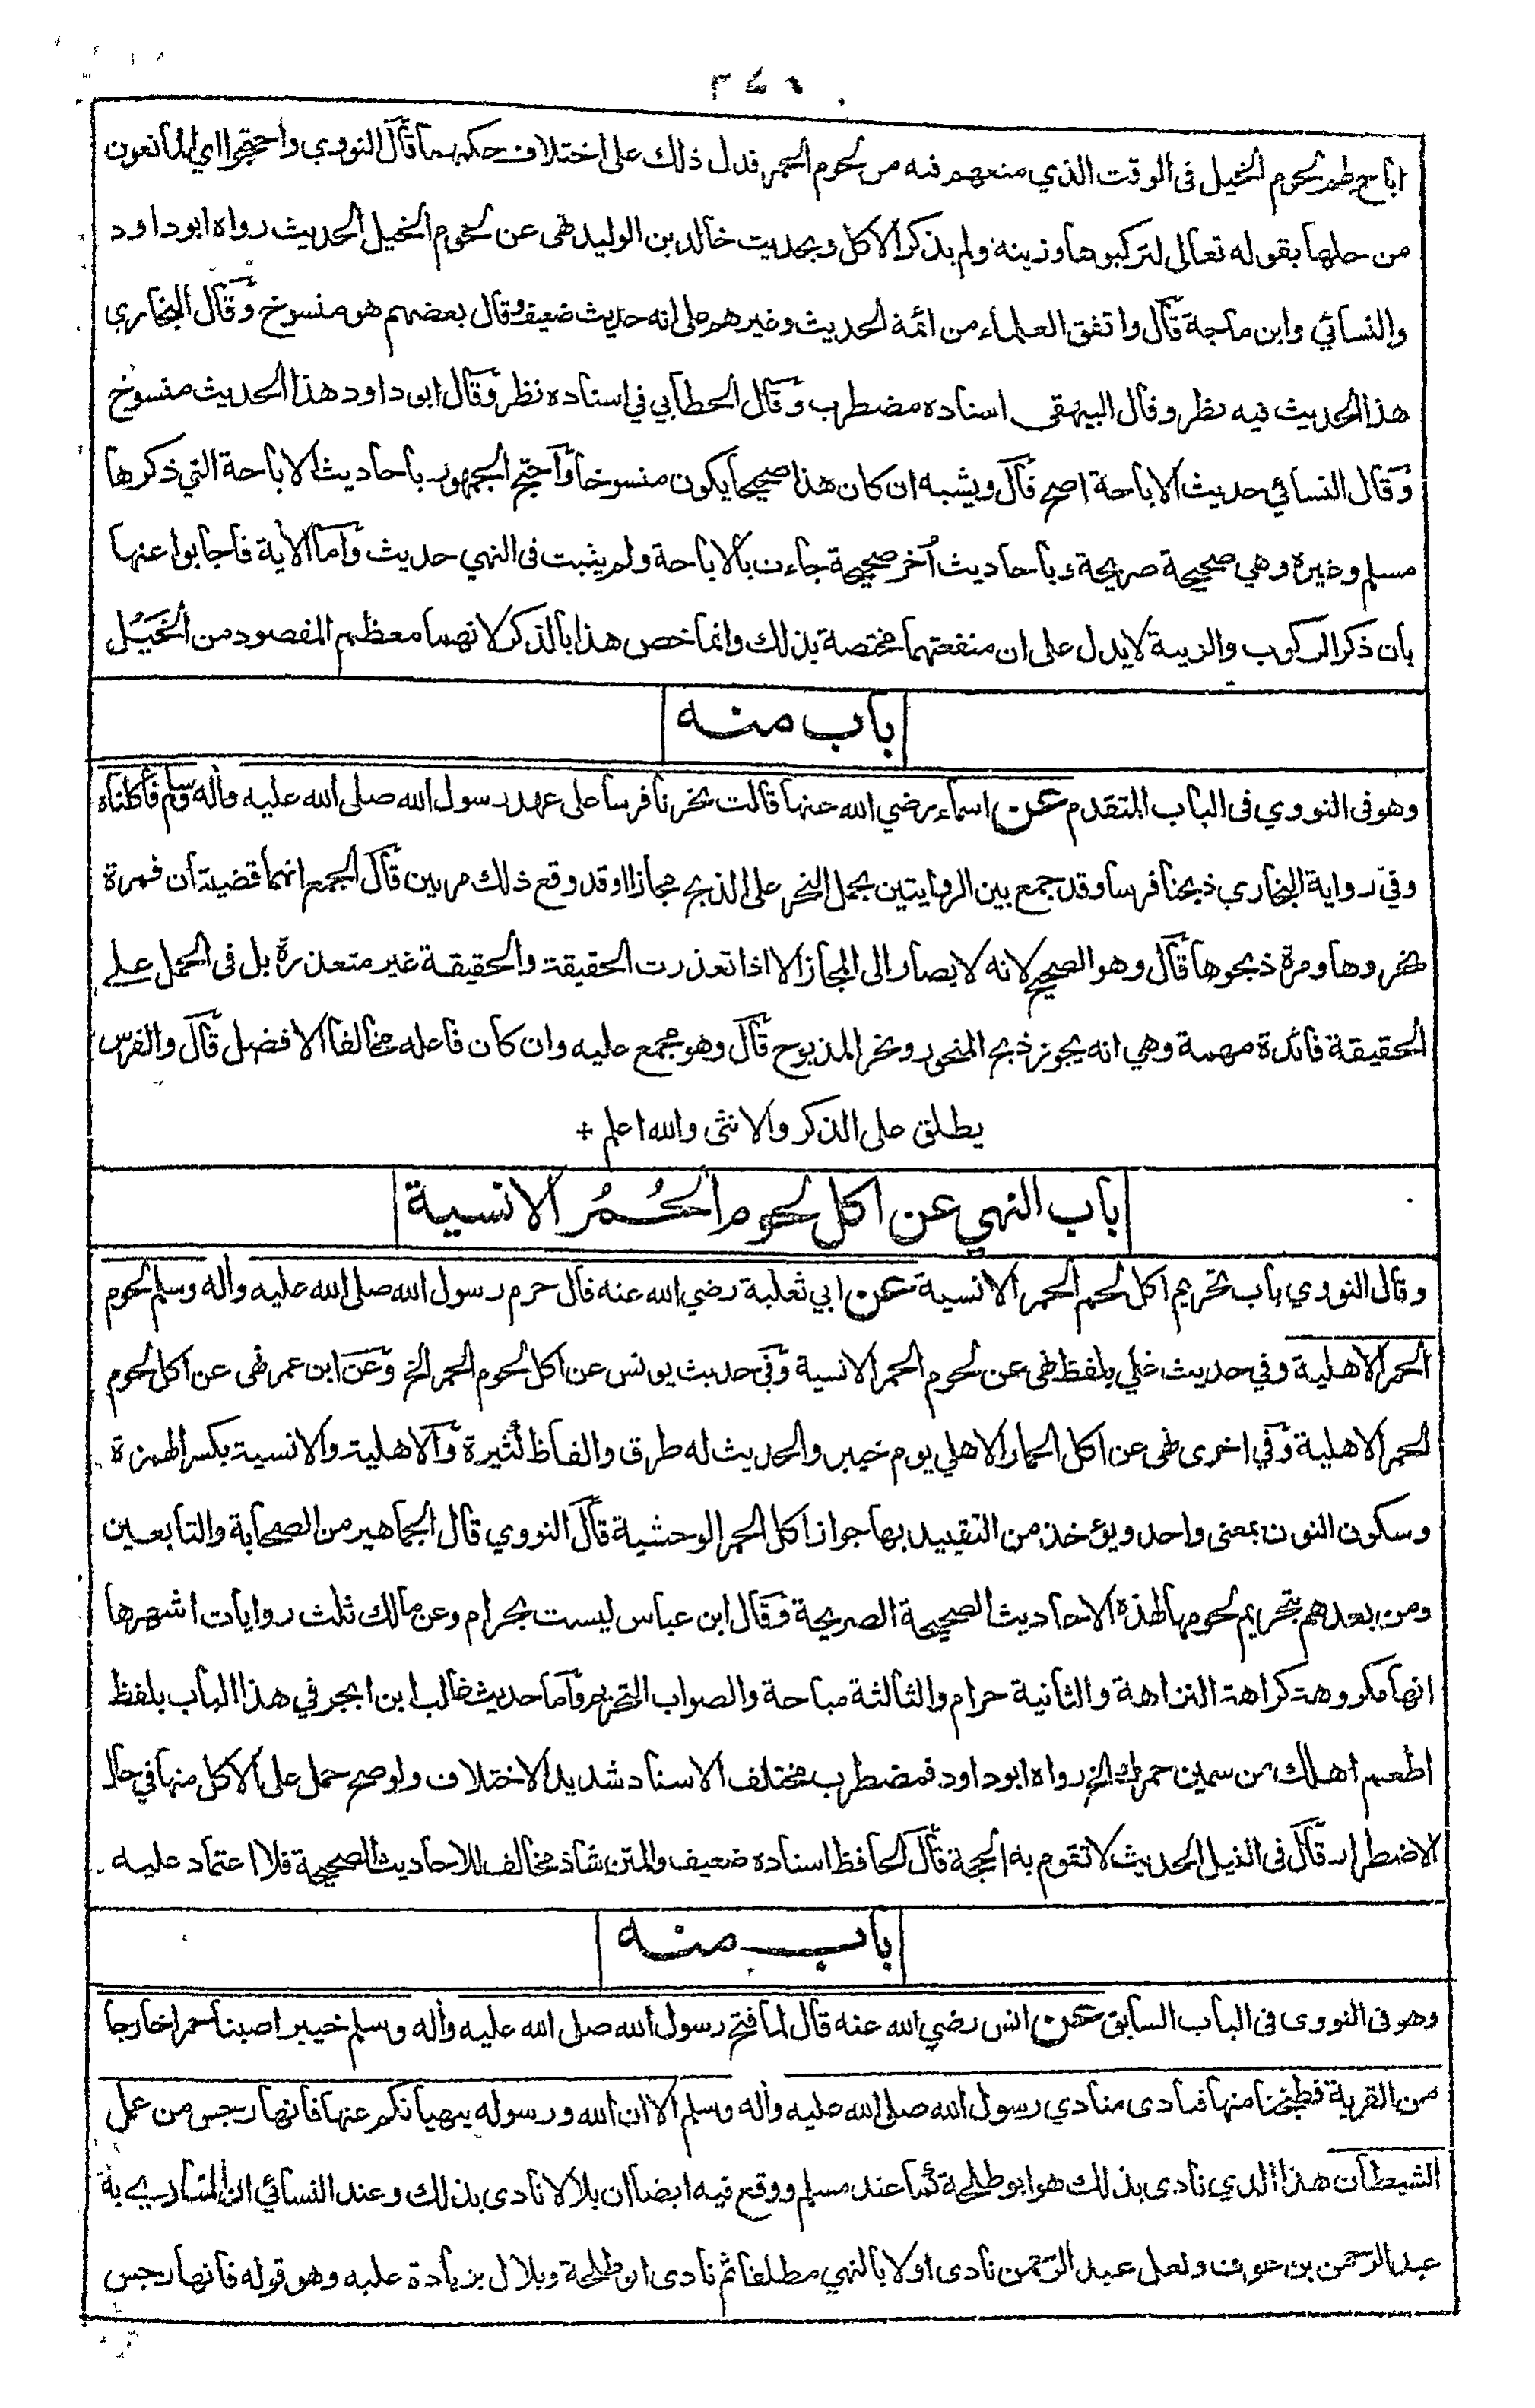 ٣٤٦
اباح لهم لحوم الخيل فى الوقت الذي منعهم فيه من لحوم الحمر فدل ذلك على اختلاف حكمهما قال النووي واحتجوا اي المانعون
من حلها بقوله تعالى لتركبوها وزينة ولم يذكر الاكل وبحديث خالد بن الوليد نهى عن لحوم الخيل الحديث رواه ابو داود
والنسائي وابن ماجة قال واتفق العلماء من ائمة الحديث وغيرهم على انه حديث ضعيف وقال بعضهم هو منسوخ وقال البخاري
هذا الحديث فيه نظر وقال البيهقي اسناده مضطرب وقال الخطابي في اسناده نظر وقال ابو داود هذا الحديث منسوخ
وقال النسائي حديث الاباحة اصح قال ويشبه ان كان هذا صحيحا يكون منسوخا واحتج الجمهور باحاديث الاباحة التي ذكرها
مسلم وغيره وهي صحيحة صريحة وباحاديث أخر صحيحة جاءت بالاباحة ولم يثبت فى النهي حديث واما الأية فاجابوا عنها
بان ذكر الركوب والزينة لا يدل على ان منفعتهما مختصة بذلك وانما خص هذا بالذكر لانهما معظم المقصود من الخَيْل
باب منه
وهو فى النووي فى الباب المتقدم عن اسماء رضي الله عنها قالت نحرنا فرسا على عهد رسول الله صلى الله عليه وأله وسلم فأكلناه
وفي رواية البخاري ذبحنا فرسا وقد جمع بين الروايتين بحمل النحر على الذبح مجازا وقد وقع ذلك مرتين قال الجمع انهما قضيتان فمرة
نحروها ومرة ذبحوها قال وهو الصحيح لانه لا يصار الى المجاز الا اذا تعذرت الحقيقة والحقيقة غير متعذرة بل فى الحمل على
الحقيقة فائدة مهمة وهي انه يجوز ذبح المنحور ونحر المذبوح قال وهو مجمع عليه وان كان فاعله مخالفا الافضل قال والفرس
يطلق على الذكر والانثى والله اعلم +
باب النهي عن اكل لحوم الحُمُر الانسية
وقال النووي باب تحريم اكل لحم الحمر الانسية عن ابي ثعلبة رضي الله عنه قال حرم رسول الله صلى الله عليه وأله وسلم لحوم
الحمر الاهلية وفي حديث علي بلفظ نهى عن لحوم الحمر الانسية وفي حديث يونس عن اكل لحوم الحمر الخ وعن ابن عمر نهى عن اكل لحوم
الحمر الاهلية وفي اخرى نهى عن اكل الحمار الاهلي يوم خيبر والحديث له طرق والفاظ كثيرة والاهلية والانسية بكسر الهمزة
وسكون النون بمعنى واحد ويؤخذ من التقييد بها جواز اكل الحمر الوحشية قال النووي قال الجماهير من الصحابة والتابعين
ومن بعدهم بتحريم لحومها لهذه الاحاديث الصحيحة الصريحة وقال ابن عباس ليست بحرام وعن مالك ثلث روايات اشهرها
انها مكروهة كراهة النزاهة والثانية حرام والثالثة مباحة والصواب التحريم واما حديث غالب ابن ابجر في هذا الباب بلفظ
اطعم اهلك من سمين حمرك الخ رواه ابو داود فمضطرب مختلف الاسناد شديد الاختلاف ولو صح حمل على الاكل منها في حال
الاضطرار قال فى النيل الحديث لا تقوم به الحجة قال الحافظ اسناده ضعيف والمتن شاذ مخالف للاحاديث الصحيحة فلا اعتماد عليه
باب منه
وهو فى النووى فى الباب السابق عن انس رضي الله عنه قال لما فتح رسول الله صلى الله عليه وأله وسلم خيبر اصبنا حمرا خارجا
من القرية فطبخنا منها فنادى منادي رسول الله صلى الله عليه وأله وسلم الا ان الله ورسوله ينهيانكم عنها فانها رجس من عمل
الشيطان هذا الذي نادى بذلك هو ابو طلحة كما عند مسلم ووقع فيه ايضا ان بلالا نادى بذلك وعند النسائي ان المنادي به
عبد الرحمن بن عوف ولعل عبد الرحمن نادى اولا بالنهي مطلقا ثم نادى ابو طلحة وبلال بزيادة عليه وهو قوله فانها رجس